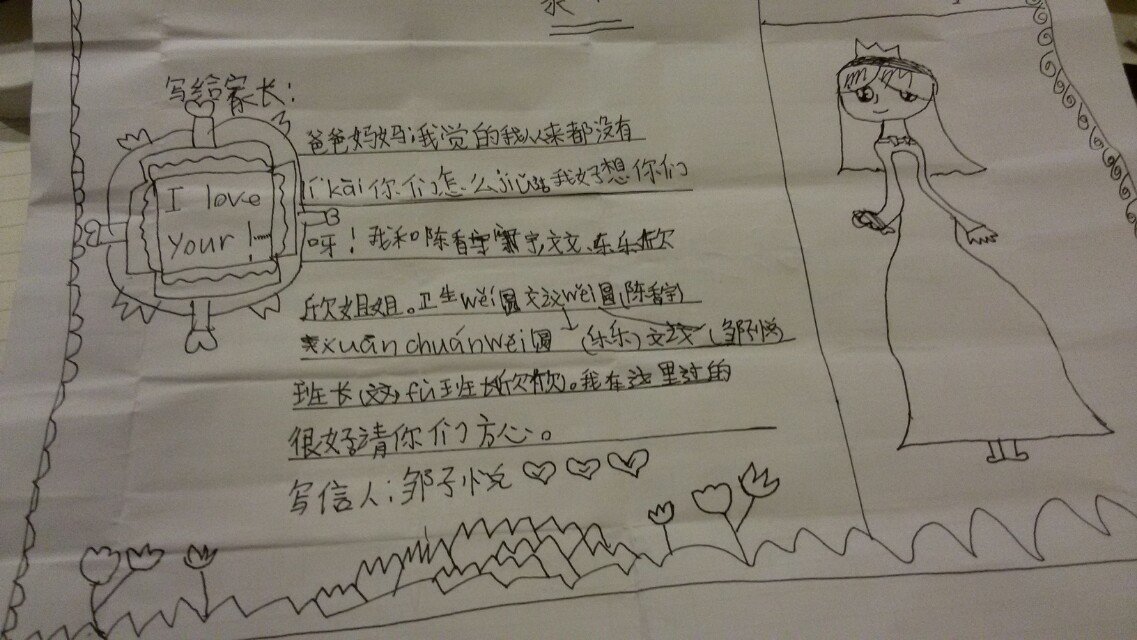 写给家长:
I love
your!
爸爸妈妈:我觉的我从来都没有
lí kāi你们怎么jiǔ我好想你们
呀！我和陈香宇文文、乐乐欣
欣姐姐。卫生wěi圆文文wěi圆(陈香宇)
xuān chuán wěi圆(乐乐)文文(邹子悦)
班长(文文)fù班长(欣欣)。我在这里过的
很好请你们方心。
写信人:邹子悦